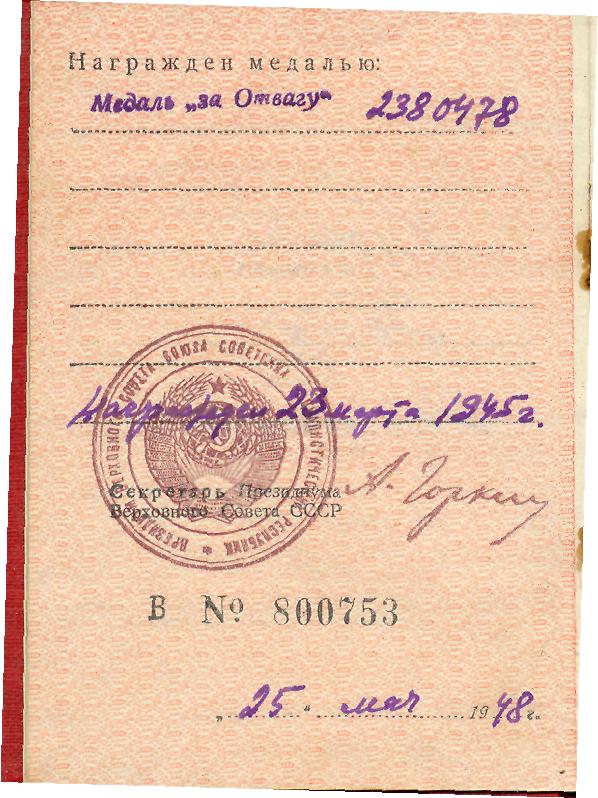 Награжден медалью:
Медаль „за Отвагу“ 2380478
Награжден 23 марта 1945г.
ПРЕЗИДИУМ ВЕРХОВНОГО СОВЕТА СОЮЗА СОВЕТСКИХ СОЦИАЛИСТИЧЕСКИХ РЕСПУБЛИК
Секретарь Президиума
Верховного Совета СССР
А. Горкин
В № 800753
„25“ мая 1948 г.